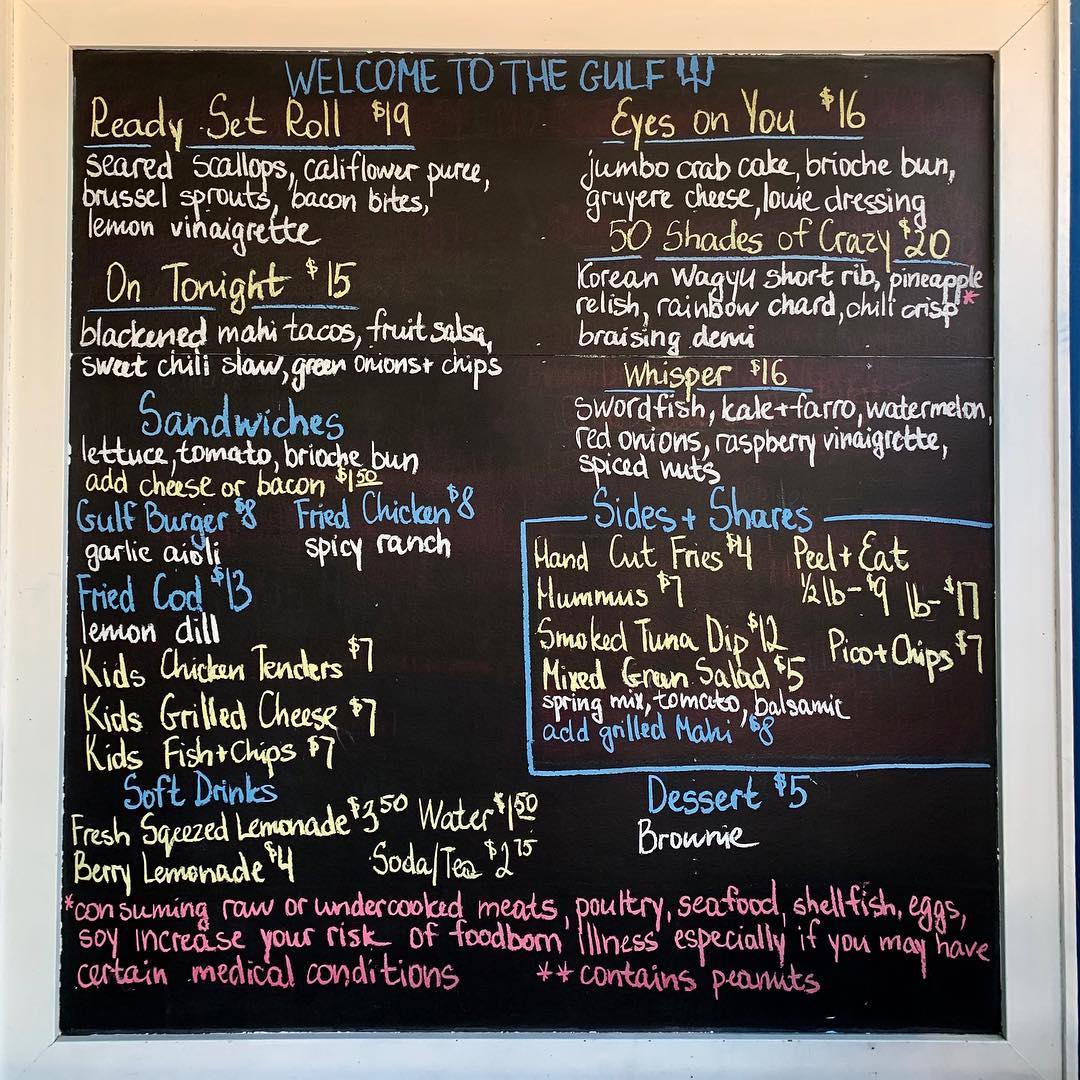 WELCOME TO THE GULF
Ready Set Roll $19
seared scallops, califlower puree,
brussel sprouts, bacon bites,
lemon vinaigrette
On Tonight $15
blackened mahi tacos, fruit salsa,
sweet chili slaw, green onions + chips
Sandwiches
lettuce, tomato, brioche bun
add cheese or bacon $1.50
Gulf Burger $8 Fried Chicken $8
garlic aioli spicy ranch
Fried Cod $13
lemon dill
Kids Chicken Tenders $7
Kids Grilled Cheese $7
Kids Fish + Chips $7
Soft Drinks
Fresh Sqeezed Lemonade $3.50 Water $1.50
Berry Lemonade $4 Soda/Tea $2.75
Eyes on You $16
jumbo crab cake, brioche bun,
gruyere cheese, louie dressing
50 Shades of Crazy $20
Korean Wagyu short rib, pineapple
relish, rainbow chard, chili crisp*
braising demi
Whisper $16
swordfish, kale + farro, watermelon,
red onions, raspberry vinaigrette,
spiced nuts
Sides + Shares
Hand Cut Fries $4 Peel + Eat
Hummus $7 1/2 lb - $9 lb - $17
Smoked Tuna Dip $12 Pico + Chips $7
Mixed Green Salad $5
spring mix, tomato, balsamic
add grilled Mahi $8
Dessert $5
Brownie
*consuming raw or undercooked meats, poultry, seafood, shellfish, eggs,
soy increase your risk of foodborn illness especially if you may have
certain medical conditions **contains peanuts